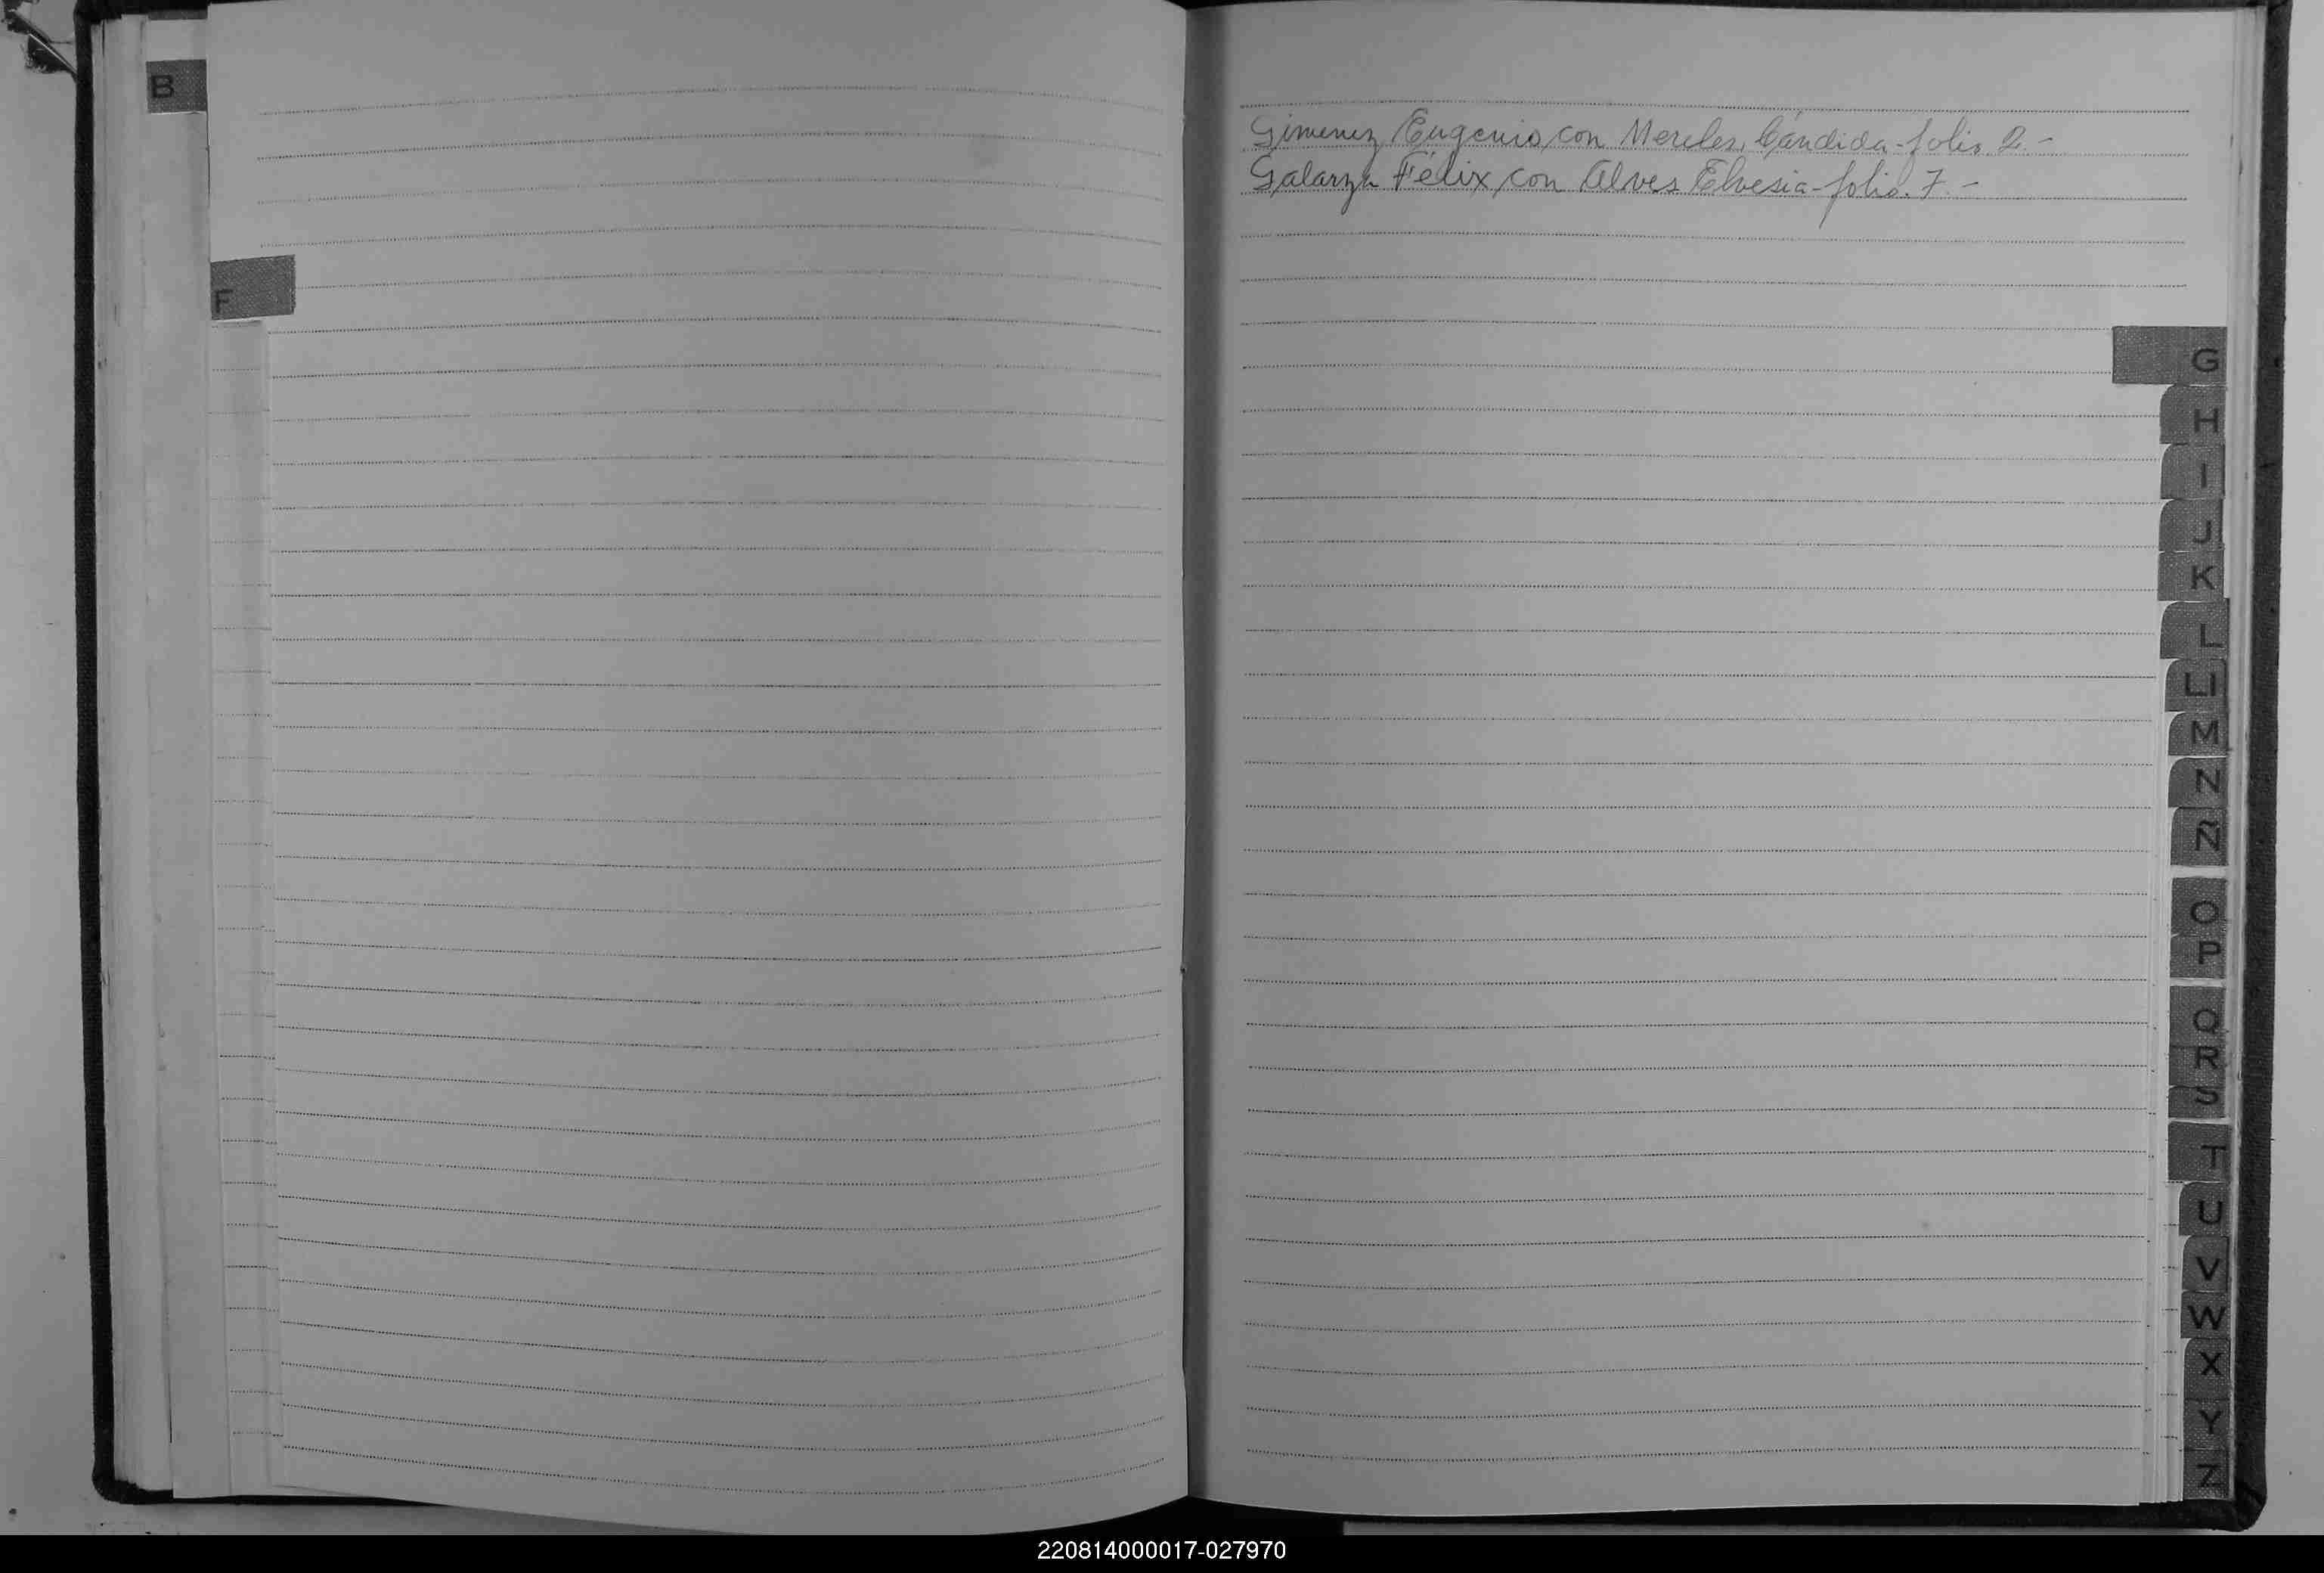 B
F
Gimenez Eugenio con Mereles Cándida - folio 2. -
Galarza Félix con Alves Elvesia - folio. 7. -
G
H
I
J
K
L
Ll
M
N
Ñ
O
P
Q
R
S
T
U
V
W
X
Y
Z
220814000017-027970